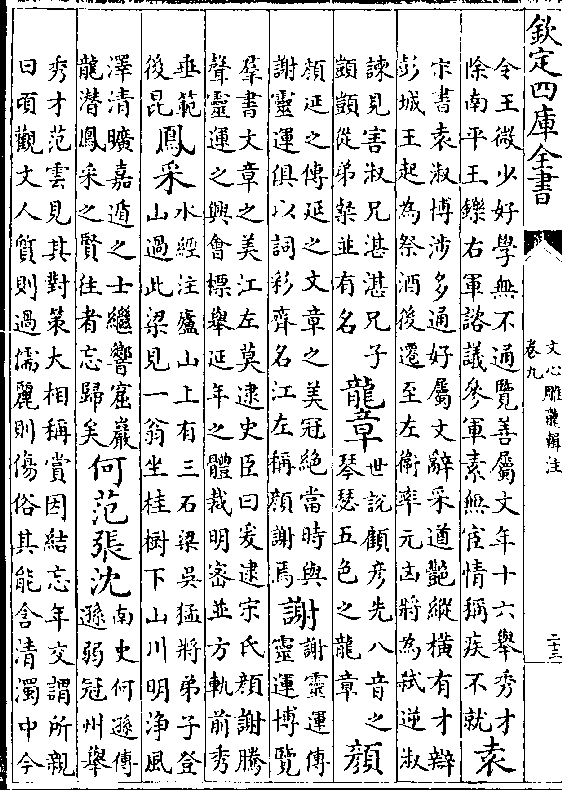 欽定四庫全書
文心雕龍輯注
卷九
二十三
令王微少好學無不通覽善屬文年十六舉秀才
除南平王鑠右軍諮議參軍素無宦情稱疾不就
袁
宋書袁淑博涉多通好屬文辭采遒艷縱橫有才辯
彭城王起為祭酒後遷至左衛率元凶將為弑逆淑
諫見害淑兄湛湛兄子
顗顗從弟粲並有名
龍章
世說顧彥先八音之
琴瑟五色之龍章
顏
顏延之傳延之文章之美冠絕當時與
謝靈運俱以詞彩齊名江左稱顏謝焉
謝
謝靈運傳
靈運博覽
羣書文章之美江左莫逮史臣曰爰逮宋氏顏謝騰
聲靈運之興會標舉延年之體裁明密並方軌前秀
垂範
後昆
鳳采
水經注廬山上有三石梁吳猛將弟子登
山過此梁見一翁坐桂樹下山川明淨風
澤清曠嘉遁之士繼響窟巖
龍潛鳳采之賢往者忘歸矣
何范張沈
南史何遜傳
遜弱冠州舉
秀才范雲見其對策大相稱賞因結忘年交謂所親
曰頃觀文人質則過儒麗則傷俗其能含清濁中今